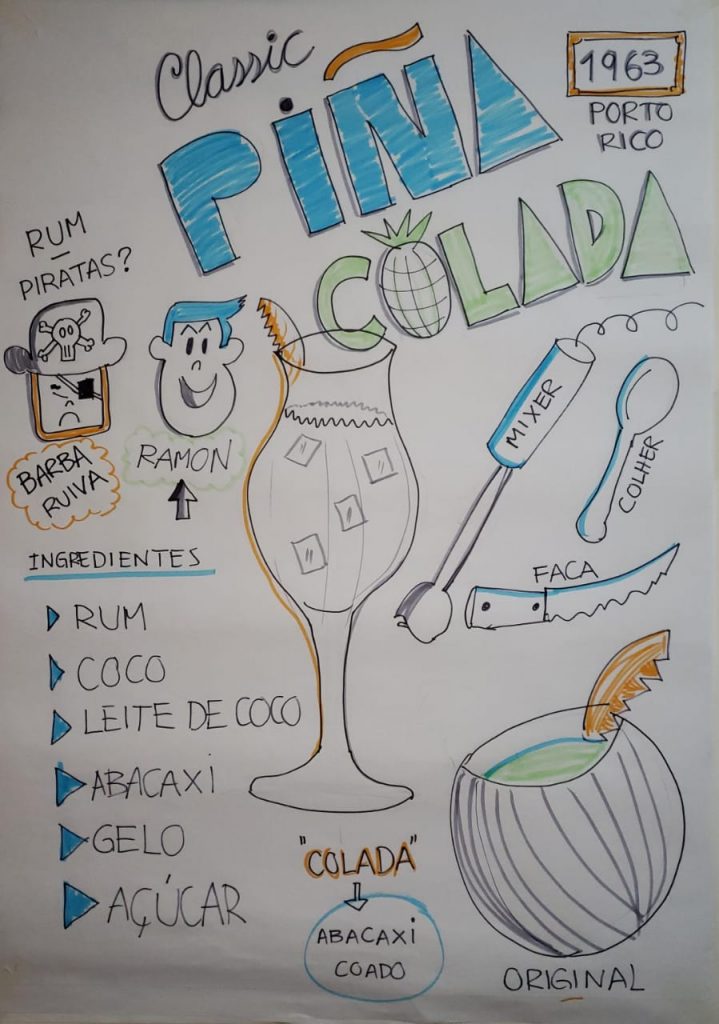 Classic
PIÑA
COLADA
1963
PORTO
RICO
RUM
PIRATAS?
BARBA
RUIVA
RAMON
MIXER
COLHER
FACA
INGREDIENTES
RUM
COCO
LEITE DE COCO
ABACAXI
GELO
AÇÚCAR
"COLADA"
ABACAXI
COADO
ORIGINAL